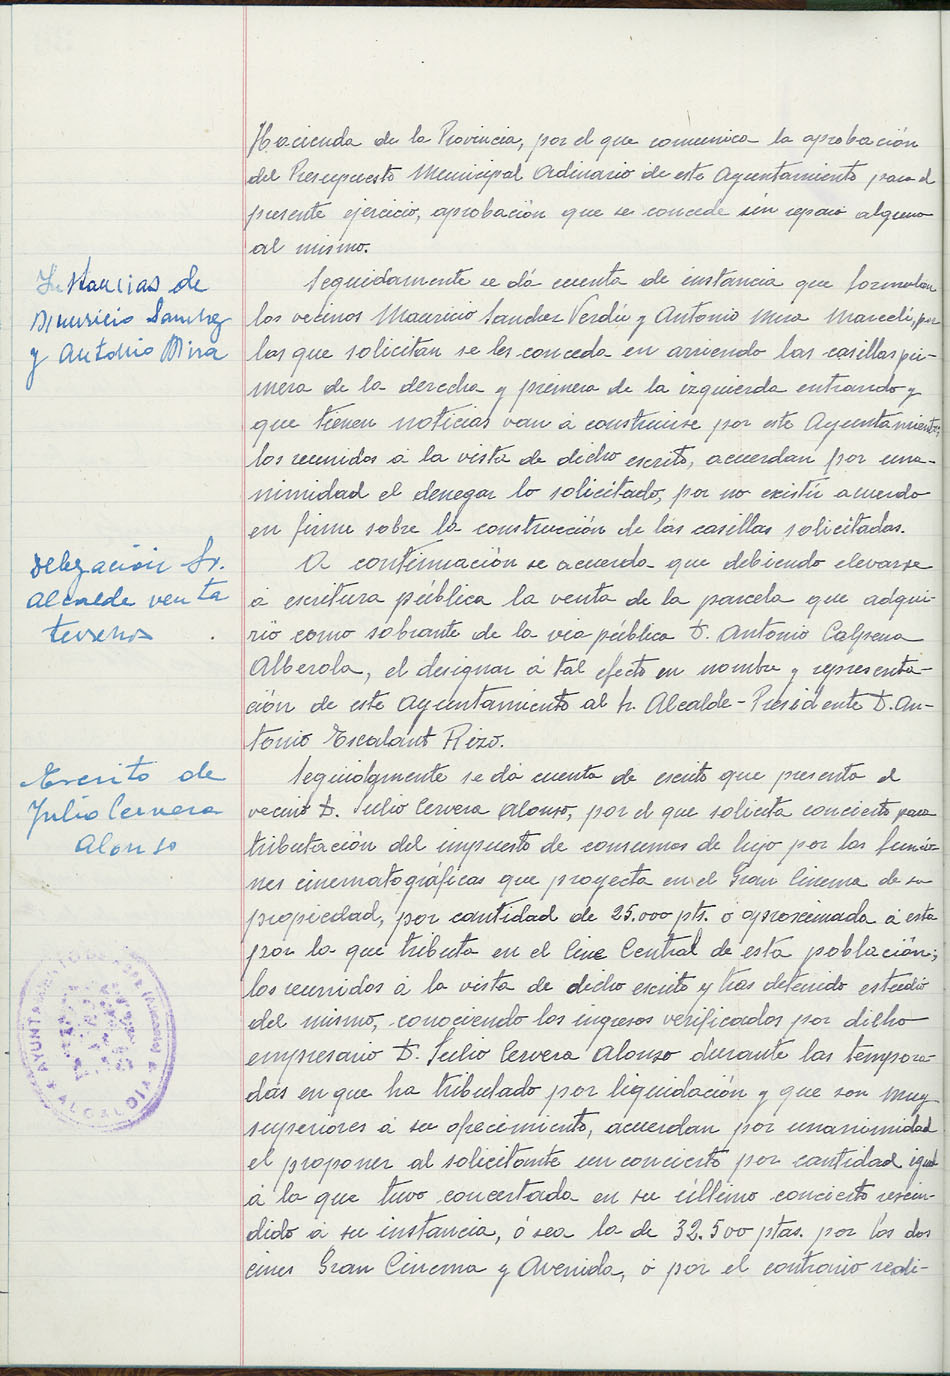 Hacienda de la Provincia, por el que comunica la aprobación
del Presupuesto Municipal Ordinario de este Ayuntamiento para el
presente ejercicio, aprobación que se concede sin reparo alguno
al mismo.
Instancias de
Mauricio Sanchez
y Antonio Mira
Seguidamente se dá cuenta de instancia que formulan
los vecinos Mauricio Sanchez Verdú y Antonio Mira Marceli, por
las que solicitan se les conceda en arriendo las casillas pri-
mera de la derecha y primera de la izquierda entrando y
que tienen noticias van á construirse por este Ayuntamiento;
los reunidos á la vista de dicho escrito, acuerdan por una-
nimidad el denegar lo solicitado, por no existir acuerdo
en firme sobre la construcción de las casillas solicitadas.
Delegación Sr.
Alcalde venta
terrenos
A continuación se acuerda que debiendo elevarse
á escritura pública la venta de la parcela que adqui-
rió como sobrante de la via pública D. Antonio Calpena
Alberola, el designar á tal efecto en nombre y representa-
ción de este Ayuntamiento al Sr. Alcalde-Presidente D. An-
tonio Escalant Rizo.
Escrito de
Julio Cervera
Alonso
Seguidamente se dá cuenta de escrito que presenta el
vecino D. Julio Cervera Alonso, por el que solicita concierto para
tributación del impuesto de consumos de lujo por las funcio-
nes cinematográficas que proyecta en el Gran Cinema de su
propiedad, por cantidad de 25.000 pts. ó aproximada á esta
por la que tributa en el Cine Central de esta población;
los reunidos á la vista de dicho escrito y tras detenido estudio
del mismo, conociendo los ingresos verificados por dicho
empresario D. Julio Cervera Alonso durante las tempora-
das en que ha tributado por liquidación y que son muy
superiores á su ofrecimiento, acuerdan por unanimidad
el proponer al solicitante un concierto por cantidad igual
á la que tuvo concertada en su último concierto rescin-
dido á su instancia, ó sea la de 32.500 ptas. por los dos
cines Gran Cinema y Avenida, ó por el contrario reali-
AYUNTAMIENTO DE
ALCALDIA